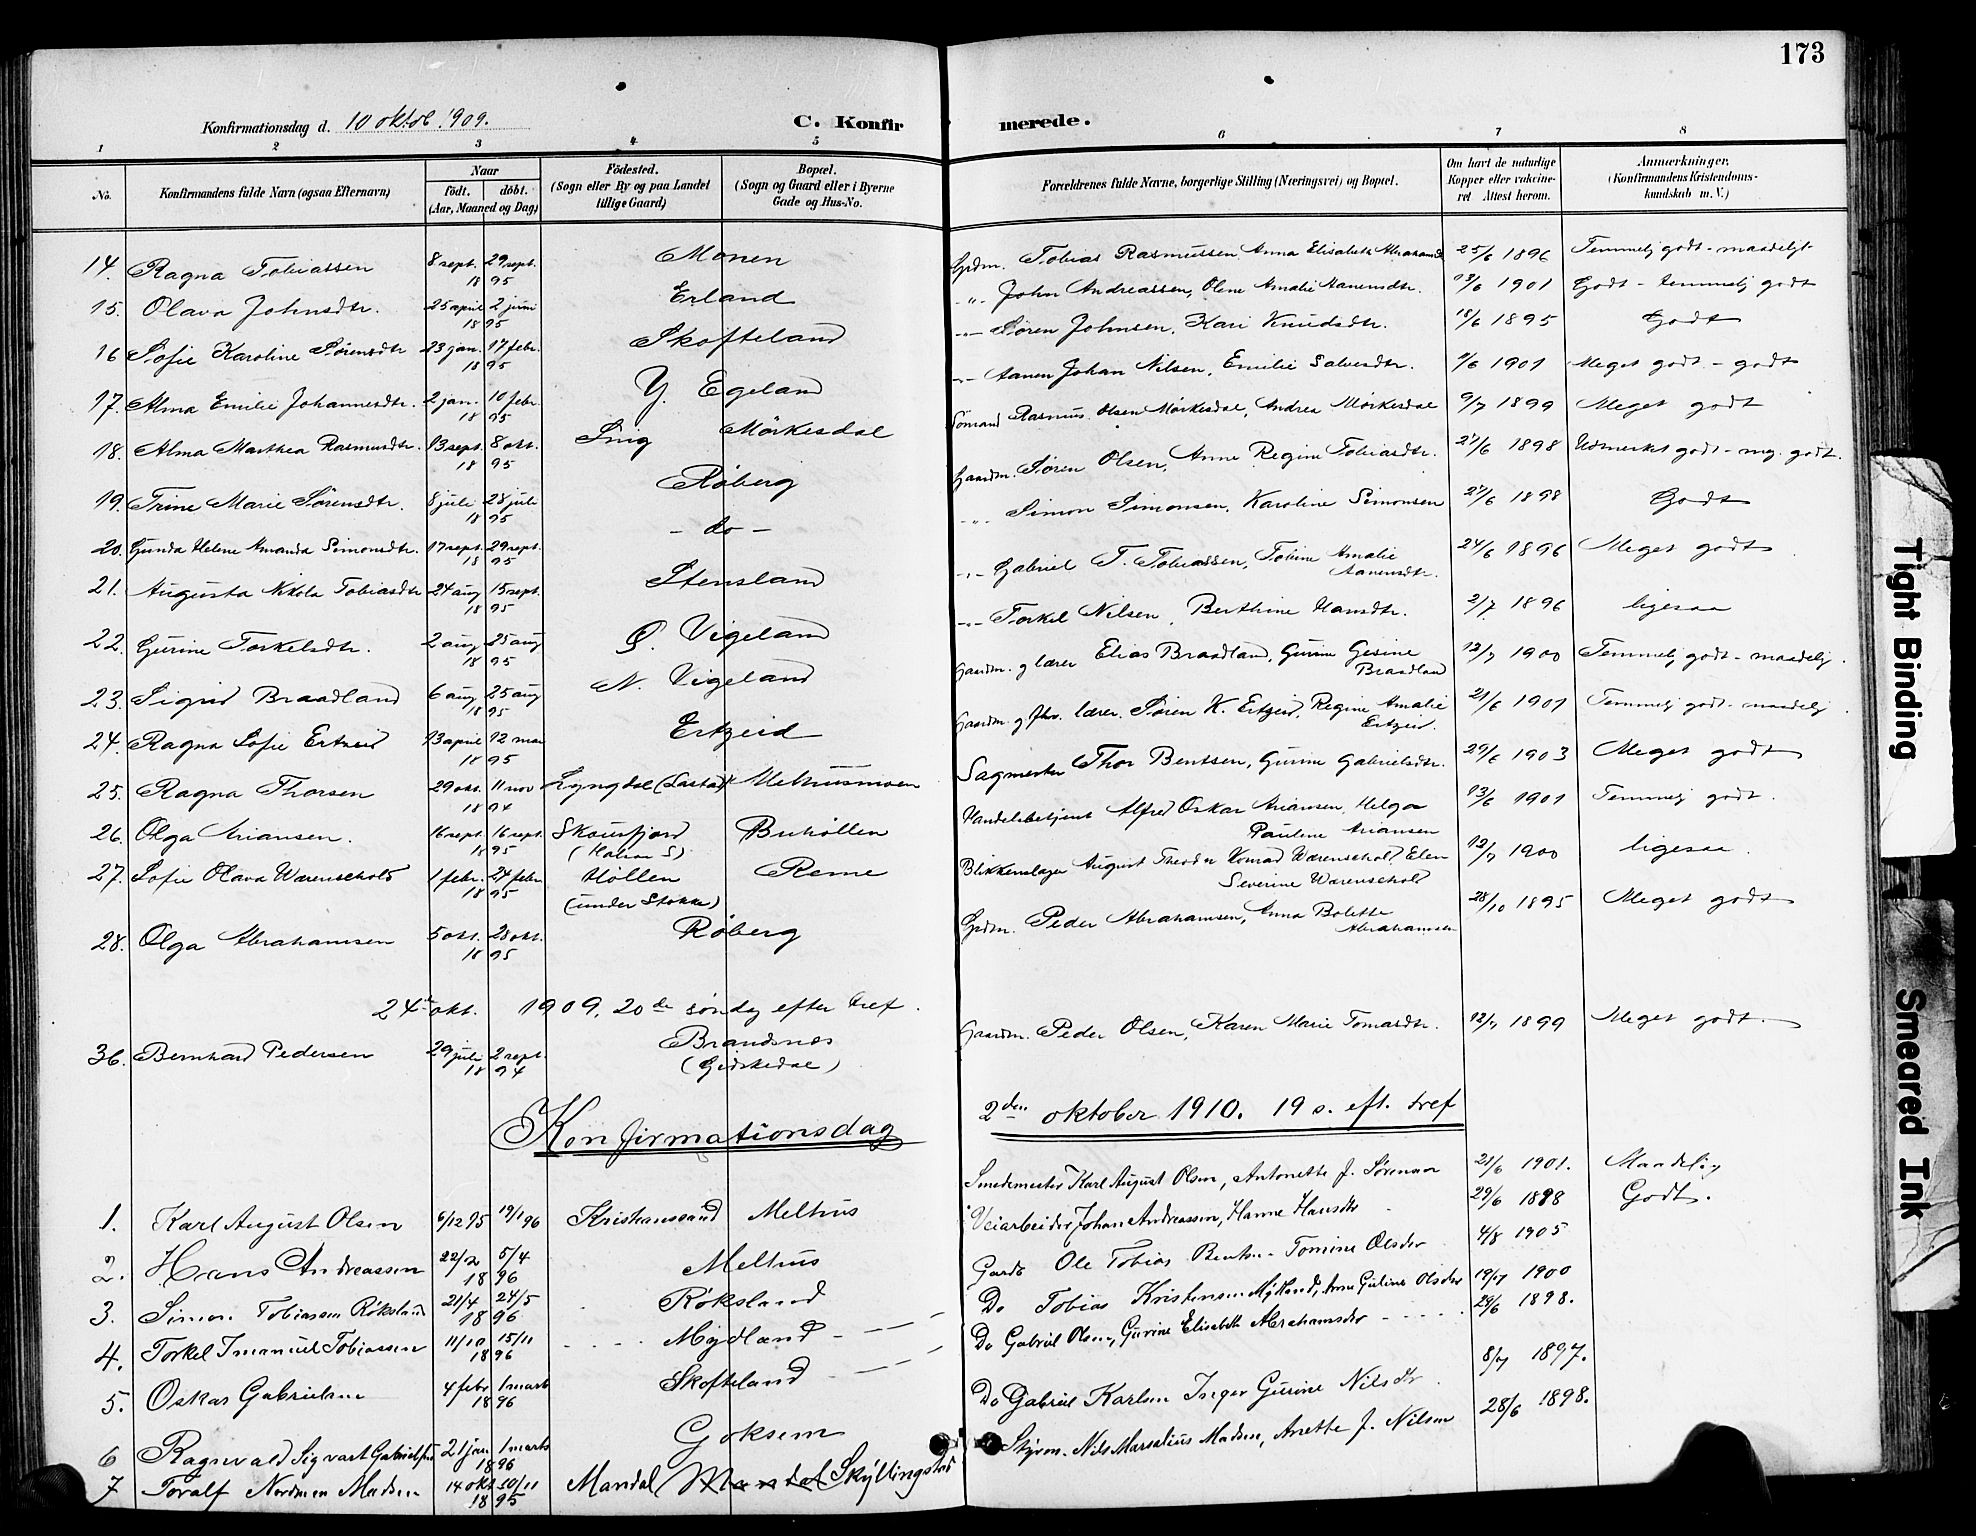 173
Konfirmationsdag d. 10 oktob. 1909.
C. Konfirmerede.
1 2 3 4 5 6 7 8
No.
Konfirmandens fulde Navn (ogsaa Efternavn)
Naar
født. döbt.
(Aar, Maaned og Dag)
Födested.
(Sogn eller By og paa Landet
tillige Gaard)
Bopæl.
(Sogn og Gaard eller i Byerne
Gade og Hus-No.
Forældrenes fulde Navne, borgerlige Stilling (Næringsvei) og Bopæl.
Om havt de naturlige
Kopper eller vakcine-
ret Attest herom.
Anmærkninger.
(Konfirmandens Kristendoms-
kundskab m. V.)
14. Ragna Tobiassen 8 sept. 29 sept. 18 95 Monen Grdm. Tobias Rasmussen, Anna Elisabeth Abrahamsd 25/6 1896 Temmelig godt - maadeligt
15. Olava Johnsdtr. 25 april 2 juni 18 95 Erland -"- John Andreassen, Olene Amalie Aanensdtr. 13/6 1901 Godt - temmelig godt
16 Sofie Karoline Sørensdtr 23 jan. 17 febr. 18 95 Skofteland -"- Søren Johnsen, Kari Knudsdtr. 18/6 1895 Godt
17. Alma Emilie Johannesdtr. 2 jan. 10 febr. 18 95 Y. Egeland -"- Aanen Johan Nilsen, Emilie Salvesdtr. 1901 Meget godt - godt
18. Alma Marthea Rasmusdtr. 13 sept. 8 okt. 18 95 Mørkesdal Sömand Rasmus Olsen Mørkesdal, Andrea Mørkesdal 9/7 1899 Meget godt
19. Trine Marie Sörensdtr. 8 juli 28 juli 18 95 Røberg Gaardm. Søren Olsen, Anne Regine Tobiasdtr. 27/6 1898 Udmerket godt - mg. godt.
20. Gunda Helene Amanda Simonsdtr. 17 sept. 29 sept. 18 95 - do - -"- Simon Simonsen, Karoline Simonsen 27/6 1898 Godt
21. Augusta Nikola Tobiasdtr 24 aug 15 sept. 18 95 Stensland -"- Gabriel T. Tobiassen, Tobine Amalie Aanensdtr. 24/6 1896 Meget godt
22. Gurine Torkelsdtr. 2 aug 25 aug 18 95 Ø. Vigeland -"- Torkel Nilsen, Berthine Hansdtr. 2/7 1896 ligesaa
23. Sigrid Braadland 6 aug 25 aug 18 95 N. Vigeland Gaardm. g lærer Elias Braadland, Gurine Gesine Braadland 12/7 1900 Temmelig godt - maadelig.
24. Ragna Sofie Ertzeid 13 april 12 mai 18 95 Ertzeid Gaardm. g fhv. lærer. Søren K. Ertzeid, Regine Amalie Ertzeid. 21/6 1901 Temmelig godt - maadelig
25. Ragna Thorsen 29 okt. 11 nov 18 94 Lyngdal Melhusmoen Sagmester Thor Bentsen, Gurine Gabrielsdtr. 29/6 1903 Meget godt
26. Olga Ariansen. 16 sept. 16 sept. 18 95 Skousfjord (Halsaa S) Buhöllen Handelsbetjent Alfred Oskar Ariansen, Helga Pauline Ariansen 13/6 1901 Temmelig godt.
27. Sofie Olava Warenschold 1 febr. 24 febr. 18 95 Höllen (under Stokke) Reme Blikkenslager August Theodor Konrad Warenschold, Elen Severine Warenschold 12/7 1900 ligesaa.
28. Olga Abrahamsen 5 okt. 28 okt. 18 95 Röberg Grdm. Peder Abrahamsen, Anna Bolette Abrahamsen 28/10 1895 Meget godt
24de okt. 1909, 20de söndag efter tref.
36. Bernhard Pedersen 29 juli 2 sept. 18 94 Brandsnes (Gidskedal) Gaardm. Peder Olsen, Karen Marie Tomasdtr. 12/7 1899 Meget godt.
Konfirmationsdag 2den oktober 1910. 19 s. eft. tref
1. Karl August Olsen 6/12 95 19/1 96 Kristianssand Melhus Smedemester Karl August Olsen, Antonette J. Sørensen 21/6 1901. Maadelig
2. Hans Andreassen 22/2 5/4 18 96 Melhus Veiarbeider Johan Andreassen, Hanne Hansdtr 29/6 1898 Godt.
3. Simon Tobiassen Röksland 21/4 24/5 18 96 Röksland Gardb Ole Tobias Bentsen - Tomine Olsdtr 4/8 1905
4. Torkel Imanuel Tobiassen 11/10 15/11 18 96 Mydland Do Tobias Kristensen Mydland, Anne Guline Olsdtr 19/7 1900
5. Oskar Gabrielsen 4 febr 1 marts 18 96 Skofteland Do Gabriel Olsen, Gurine Elisabeth Abrahamsdtr 29/6 1898.
6 Ragnvald Sigvart Gabrielsen 21 jan 1 marts 18 96 Goksem Do Gabriel Karlsen Inger Gurine Nilsdtr 8/7 1897.
7 Toralf Nordmen Madsen 14 okt 30/11 18 95 Mandal Mandal Skyllingstad Styrm. Nils Marselius Madsen, Anette J. Nilsen 28/6 1898.
Tight Binding
Smeared Ink